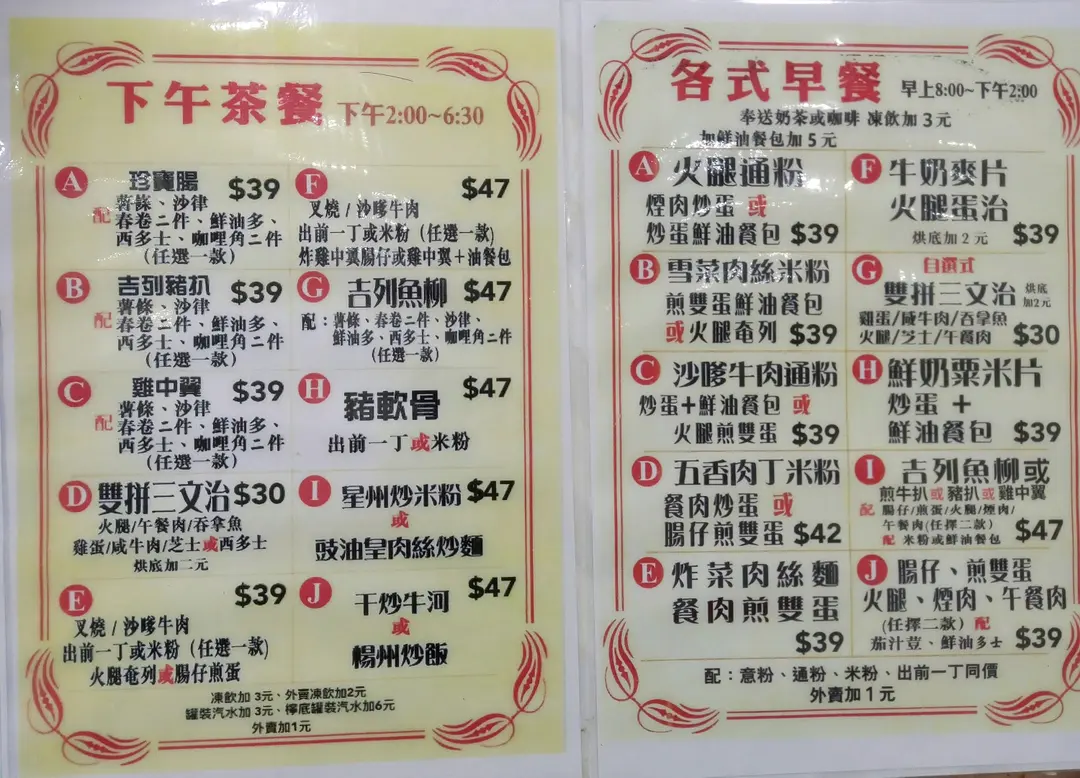 下午茶餐 下午2:00~6:30
A 珍寶腸 $39
配 薯條、沙律
春卷二件、鮮油多、
西多士、咖哩角二件
(任選一款)
B 吉列豬扒 $39
配 薯條、沙律
春卷二件、鮮油多、
西多士、咖哩角二件
(任選一款)
C 雞中翼 $39
配 薯條、沙律
春卷二件、鮮油多、
西多士、咖哩角二件
(任選一款)
D 雙拼三文治 $30
火腿/午餐肉/吞拿魚
雞蛋/咸牛肉/芝士或西多士
烘底加二元
E $39
叉燒/沙嗲牛肉
出前一丁或米粉(任選一款)
火腿奄列或腸仔煎蛋
F $47
叉燒/沙嗲牛肉
出前一丁或米粉(任選一款)
炸雞中翼腸仔或雞中翼+油餐包
G 吉列魚柳 $47
配:薯條、春卷二件、沙律、
鮮油多、西多士、咖哩角二件
(任選一款)
H $47
豬軟骨
出前一丁或米粉
I 星州炒米粉 $47
或
豉油皇肉絲炒麵
J 干炒牛河 $47
或
楊州炒飯
凍飲加 3元、外賣凍飲加2元
罐裝汽水加 3元、檸底罐裝汽水加6元
外賣加1元
各式早餐 早上8:00~下午2:00
奉送奶茶或咖啡 凍飲加3元
加鮮油餐包加5元
A 火腿通粉
煙肉炒蛋 或
炒蛋鮮油餐包 $39
B 雪菜肉絲米粉
煎雙蛋鮮油餐包
或火腿奄列 $39
C 沙嗲牛肉通粉
炒蛋+鮮油餐包 或
火腿煎雙蛋 $39
D 五香肉丁米粉
餐肉炒蛋 或
腸仔煎雙蛋 $42
E 炸菜肉絲麵
餐肉煎雙蛋
$39
F 牛奶麥片
火腿蛋治
烘底加2元 $39
G 自選式
雙拼三文治 烘底
加2元
雞蛋/咸牛肉/吞拿魚
火腿/芝士/午餐肉 $30
H 鮮奶粟米片
炒蛋 +
鮮油餐包 $39
I 吉列魚柳或
煎牛扒或豬扒或雞中翼
配 腸仔/煎蛋/火腿/煙肉/
午餐肉(任擇二款)
配 米粉或鮮油餐包 $47
J 腸仔、煎雙蛋
火腿、煙肉、午餐肉
(任擇二款) 配
茄汁荳、鮮油多士 $39
配:意粉、通粉、米粉、出前一丁同價
外賣加1元